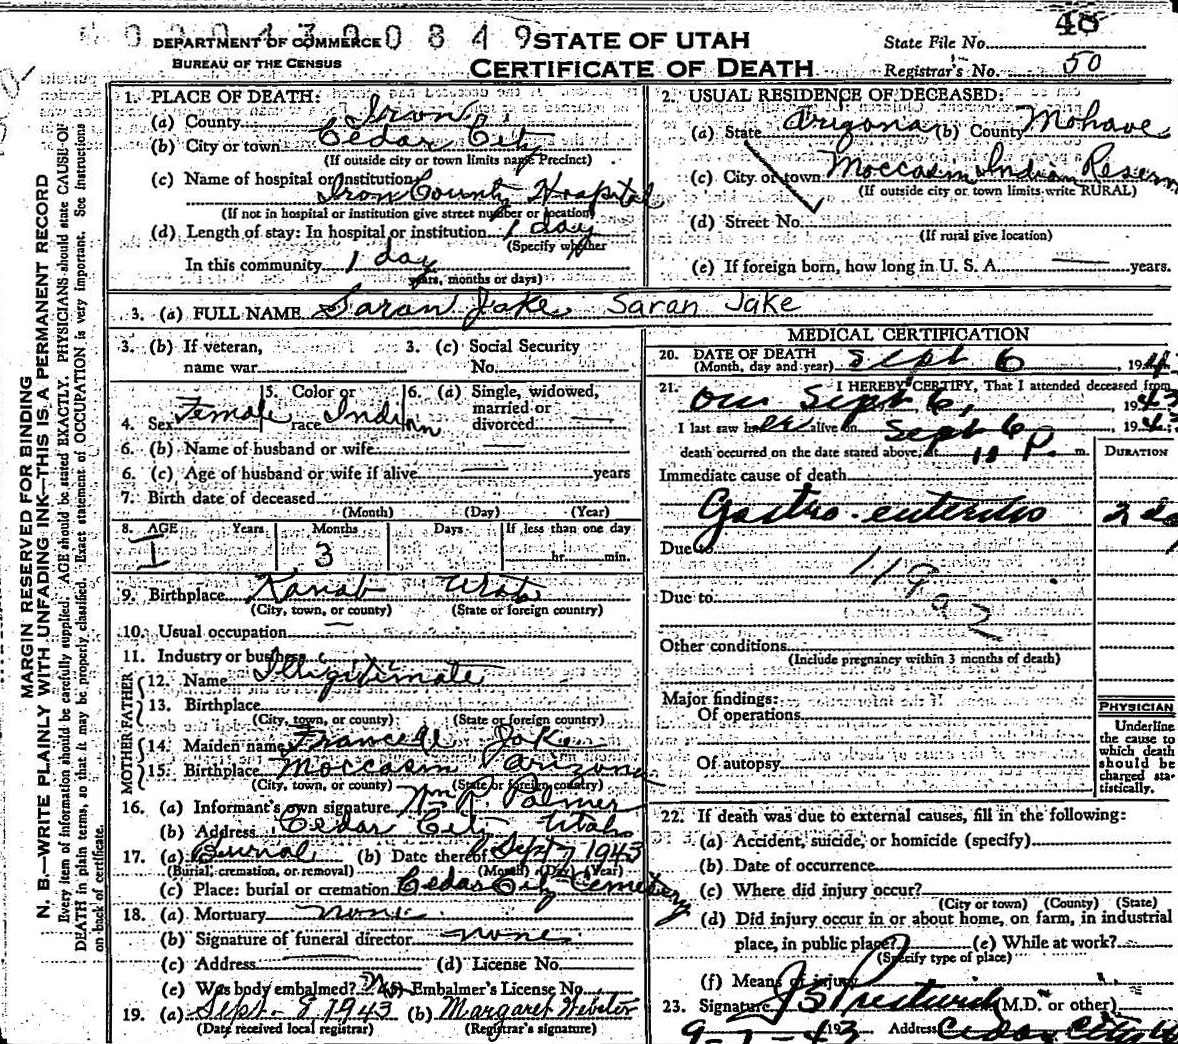 0 0 4 3 0 0 8 4 9
48
DEPARTMENT OF COMMERCE
BUREAU OF THE CENSUS
STATE OF UTAH
CERTIFICATE OF DEATH
State File No.
Registrar's No. 50
MARGIN RESERVED FOR BINDING
N. B.—WRITE PLAINLY WITH UNFADING INK—THIS IS A PERMANENT RECORD
Every item of information should be carefully supplied. AGE should be stated EXACTLY. PHYSICIANS should state CAUSE OF
DEATH in plain terms, so that it may be properly classified. Exact statement of OCCUPATION is very important. See instructions
on back of certificate.
1. PLACE OF DEATH:
(a) County Iron
(b) City or town Cedar City
(If outside city or town limits name Precinct)
(c) Name of hospital or institution
Iron County Hospital
(If not in hospital or institution give street number or location)
(d) Length of stay: In hospital or institution 1 day
(Specify whether
In this community 1 day
years, months or days)
2. USUAL RESIDENCE OF DECEASED:
(a) State Arizona (b) County Mohave
(c) City or town Moccasin Indian Reserv
(If outside city or town limits write RURAL)
(d) Street No.
(If rural give location)
(e) If foreign born, how long in U. S. A. years.
3. (a) FULL NAME Saran Jake Saran Jake
3. (b) If veteran,
name war
3. (c) Social Security
No.
4. Sex Female
5. Color or
race Indian
6. (a) Single, widowed,
married or
divorced
6. (b) Name of husband or wife
6. (c) Age of husband or wife if alive years
7. Birth date of deceased
(Month) (Day) (Year)
8. AGE Years Months Days If less than one day
1 3 hr. min.
9. Birthplace Kanab Utah
(City, town, or county) (State or foreign country)
10. Usual occupation
11. Industry or business
FATHER
12. Name Illigitimate
13. Birthplace
(City, town, or county) (State or foreign country)
MOTHER
14. Maiden name Jake
15. Birthplace Moccasin Arizona
(City, town, or county) (State or foreign country)
16. (a) Informant's own signature Wm R. Palmer
(b) Address Cedar City Utah
17. (a) Burial (b) Date thereof Sept 7 1943
(Burial, cremation, or removal) (Month) (Day) (Year)
(c) Place: burial or cremation Cedar City Cemetery
18. (a) Mortuary none
(b) Signature of funeral director none
(c) Address (d) License No.
(e) Was body embalmed? No (f) Embalmer's License No.
19. (a) Sept. 8 1943 (b) Margaret Webster
(Date received local registrar) (Registrar's signature)
MEDICAL CERTIFICATION
20. DATE OF DEATH
(Month, day and year) Sept 6, 194
21. I HEREBY CERTIFY, That I attended deceased from
on Sept 6, 1943
I last saw her alive on Sept 6 194
death occurred on the date stated above, at 11 P. m.
DURATION
Immediate cause of death
Gastro-enteritis 2 da
Due to
119
Due to
Other conditions
(Include pregnancy within 3 months of death)
Major findings:
Of operations
Of autopsy
PHYSICIAN
Underline
the cause to
which death
should be
charged sta-
tistically.
22. If death was due to external causes, fill in the following:
(a) Accident, suicide, or homicide (specify)
(b) Date of occurrence
(c) Where did injury occur?
(City or town) (County) (State)
(d) Did injury occur in or about home, on farm, in industrial
place, in public place? (e) While at work?
(Specify type of place)
(f) Means of injury
23. Signature J S Prestwich (M.D. or other)
9-7-43 Address Cedar City U